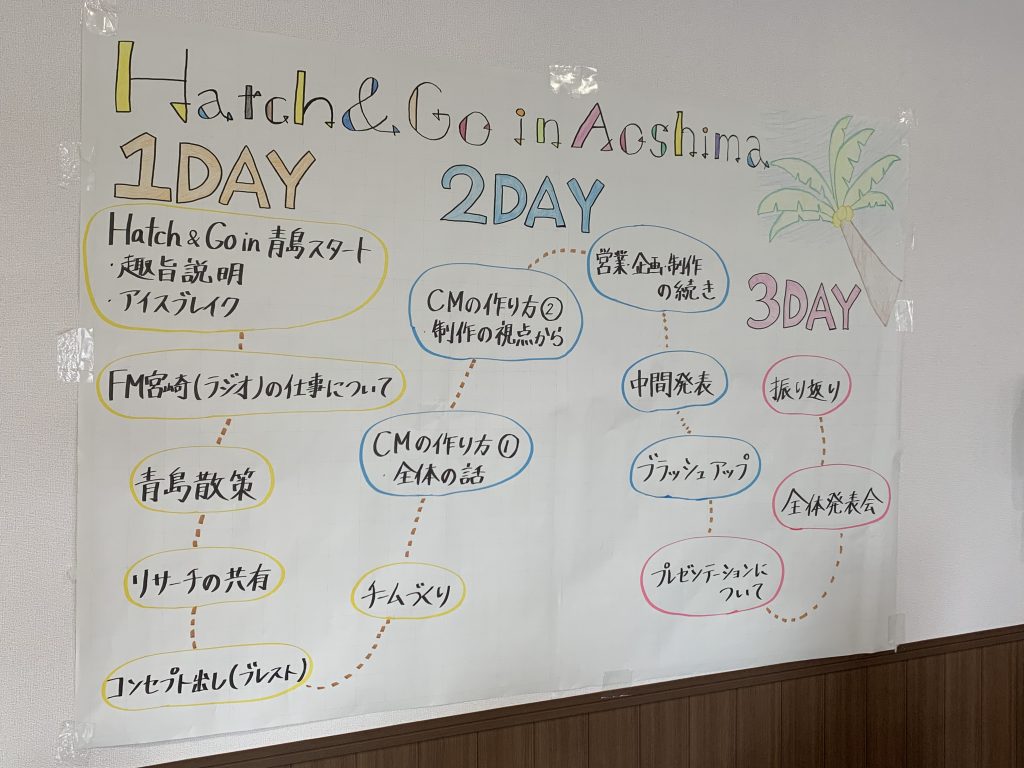 Hatch & Go in Aoshima
1DAY
Hatch & Go in 青島スタート
・趣旨説明
・アイスブレイク
FM宮崎(ラジオ)の仕事について
青島散策
リサーチの共有
コンセプト出し(ブレスト)
チームづくり
2DAY
CMの作り方①
・全体の話
CMの作り方②
・制作の視点から
営業・企画・制作
の続き
中間発表
ブラッシュアップ
3DAY
プレゼンテーションに
ついて
全体発表会
振り返り